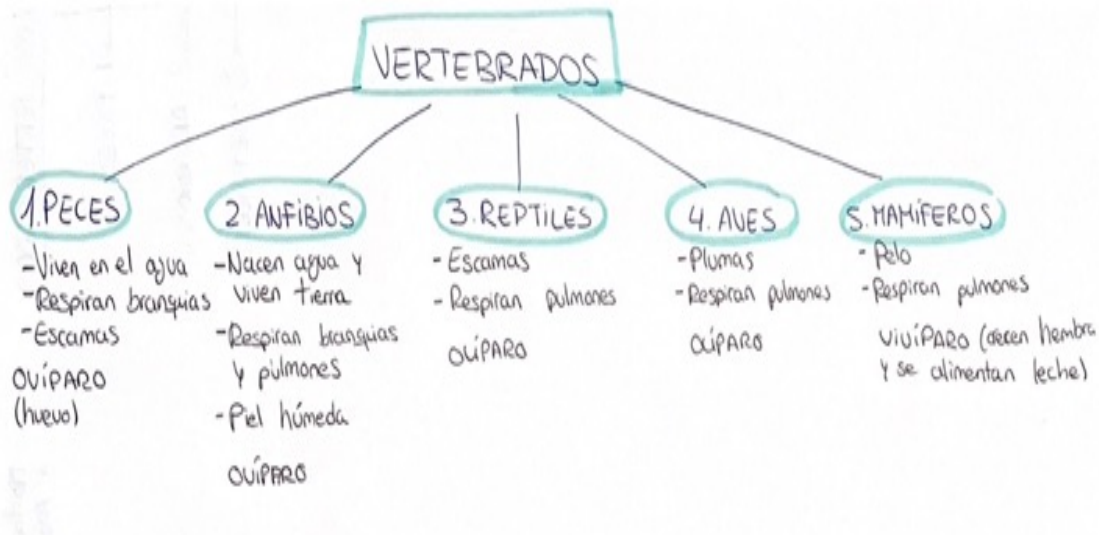 VERTEBRADOS
1. PECES
- Viven en el agua
- Respiran branquias
- Escamas
OVÍPARO
(huevo)
2. ANFIBIOS
- Nacen agua y
viven tierra
- Respiran branquias
y pulmones
- Piel húmeda
OVÍPARO
3. REPTILES
- Escamas
- Respiran pulmones
OVÍPARO
4. AVES
- Plumas
- Respiran pulmones
OVÍPARO
5. MAMÍFEROS
- Pelo
- Respiran pulmones
VIVÍPARO (crecen hembra
y se alimentan leche)